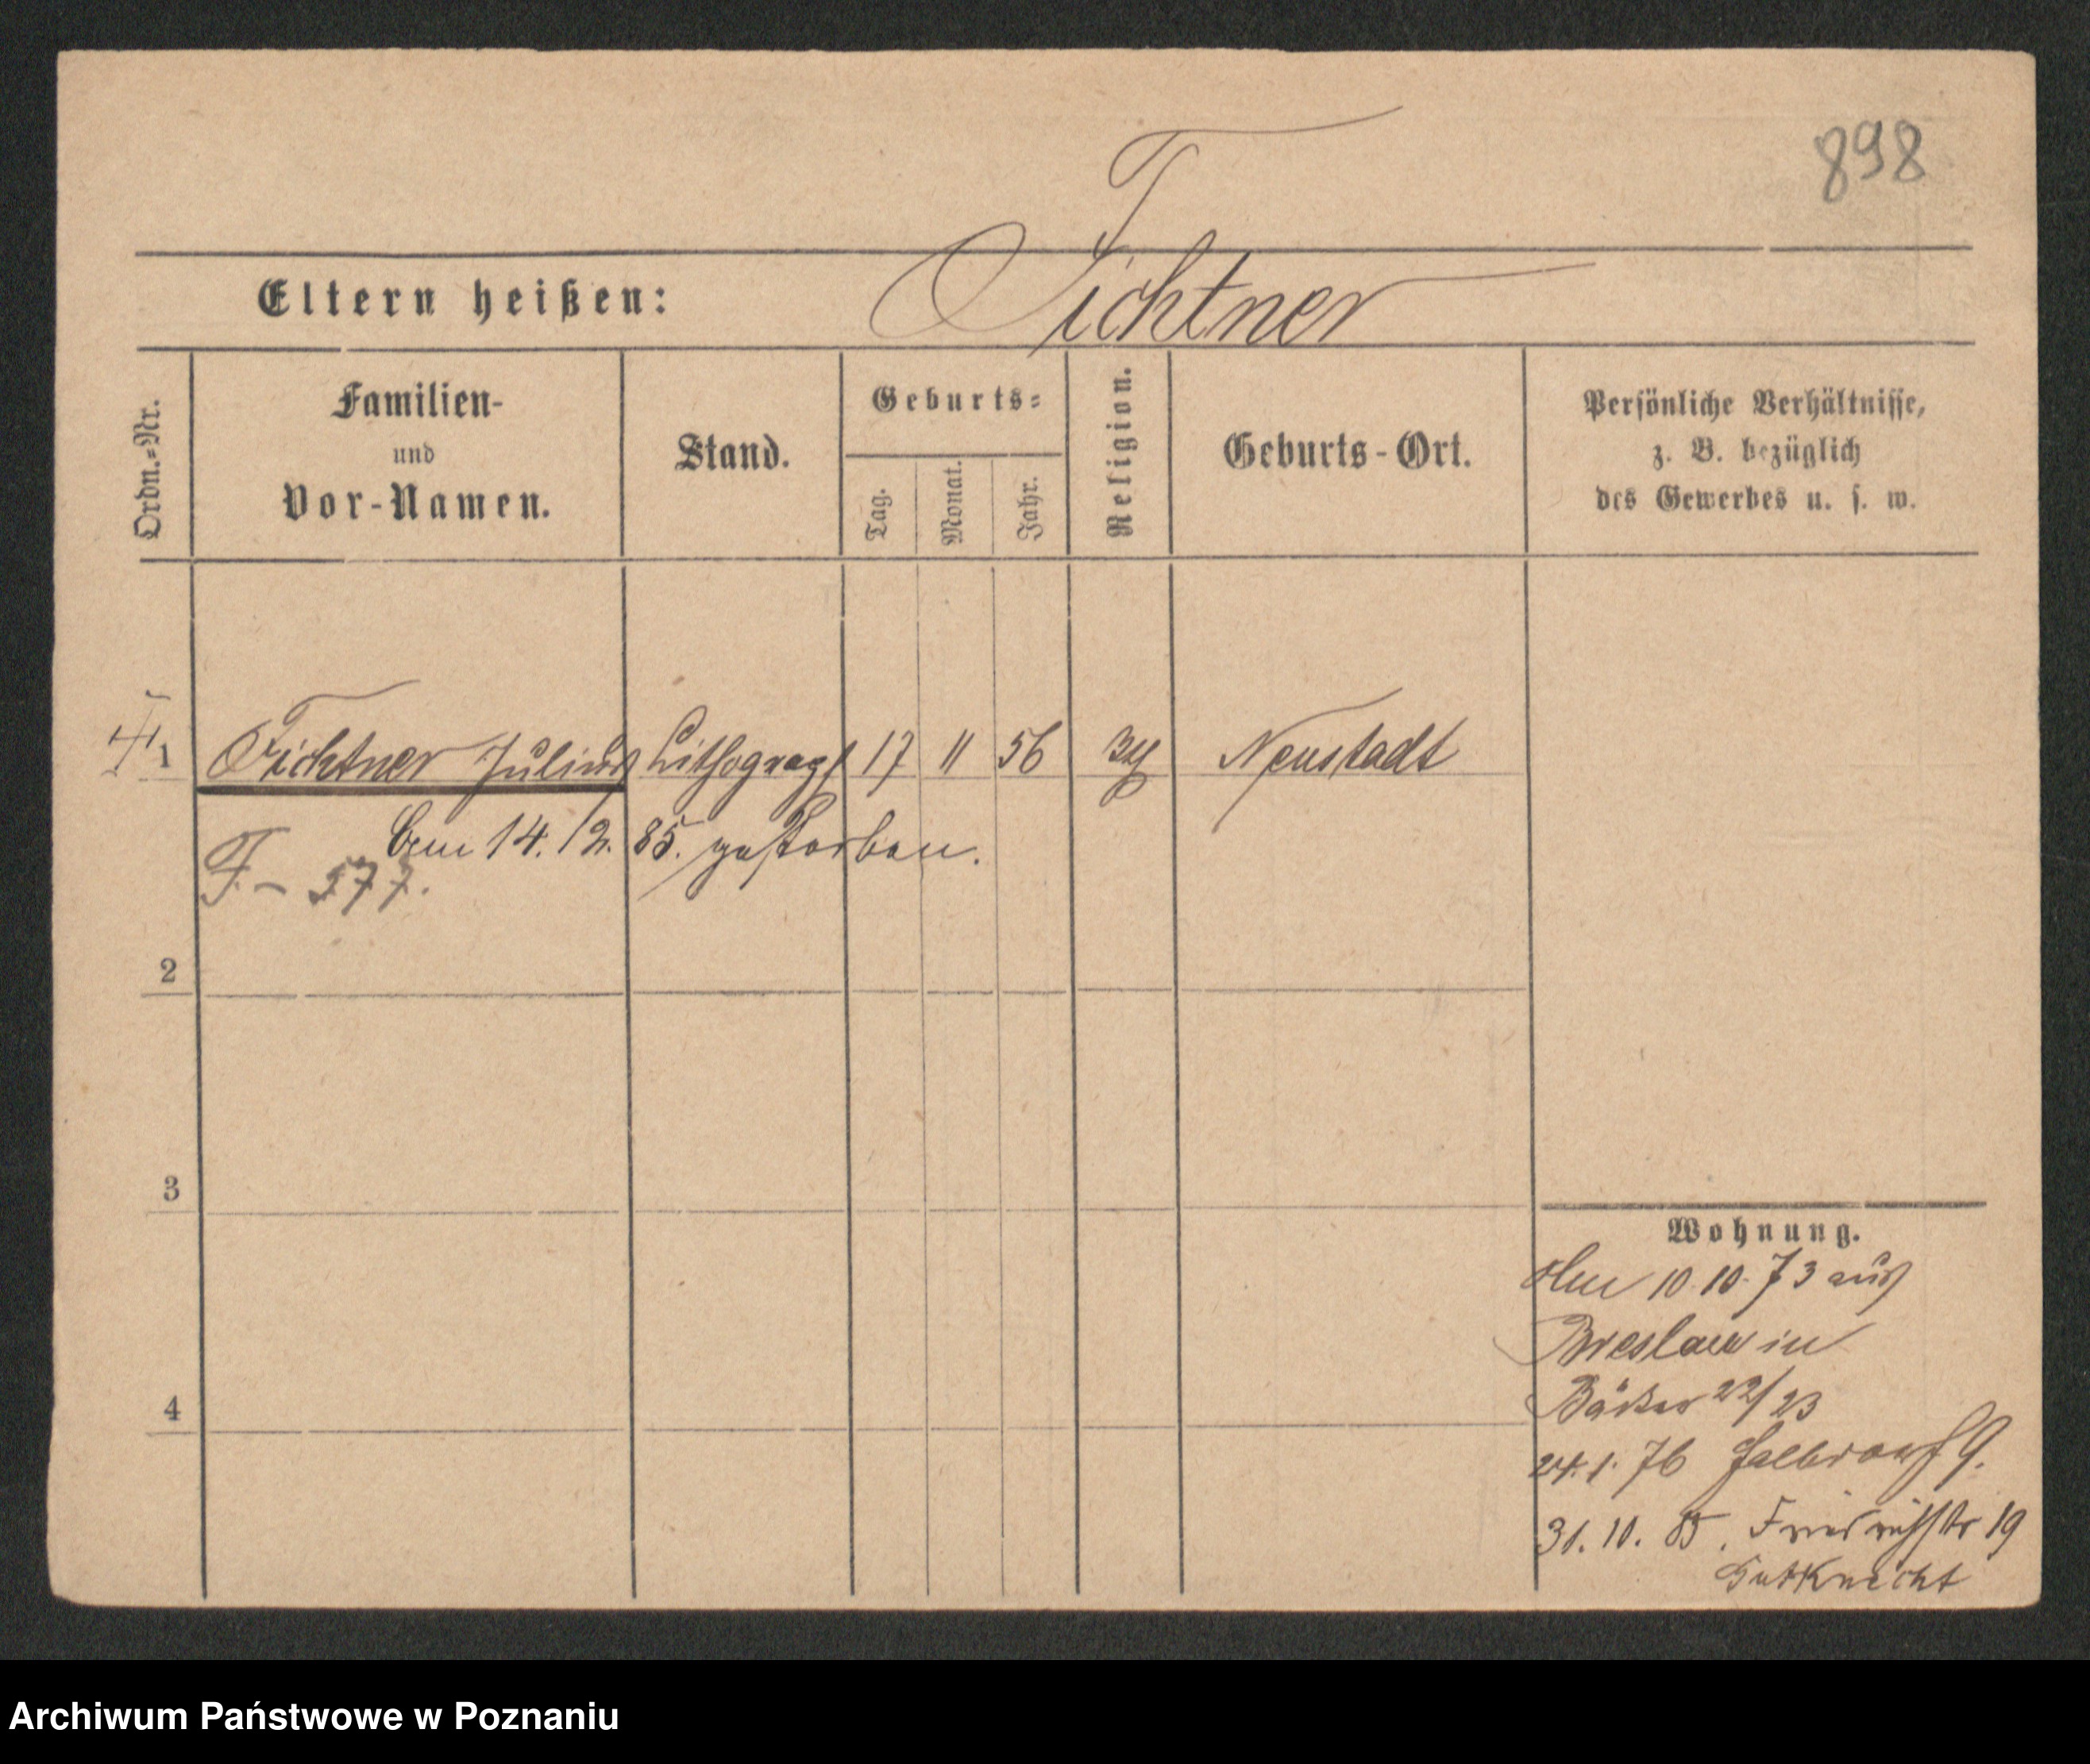 898
Eltern heißen: Fichtner
Ordn.=Nr.
Familien-
und
Vor-Namen.
Stand.
Geburts=
Tag.
Monat.
Jahr.
Religion.
Geburts-Ort.
Persönliche Verhältnisse,
z. B. bezüglich
des Gewerbes u. s. w.
1 Fichtner Julius Lithograph 17 11 56 Neustadt
14. /2. 85. gestorben.
F. - 577.
2
3
4
Wohnung.
10. 10. 73 aus
Breslau in
Bäcker 22/23
24. 1. 76 9.
31. 10. 85. Friedrichstr 19
Gutknecht
Archiwum Państwowe w Poznaniu